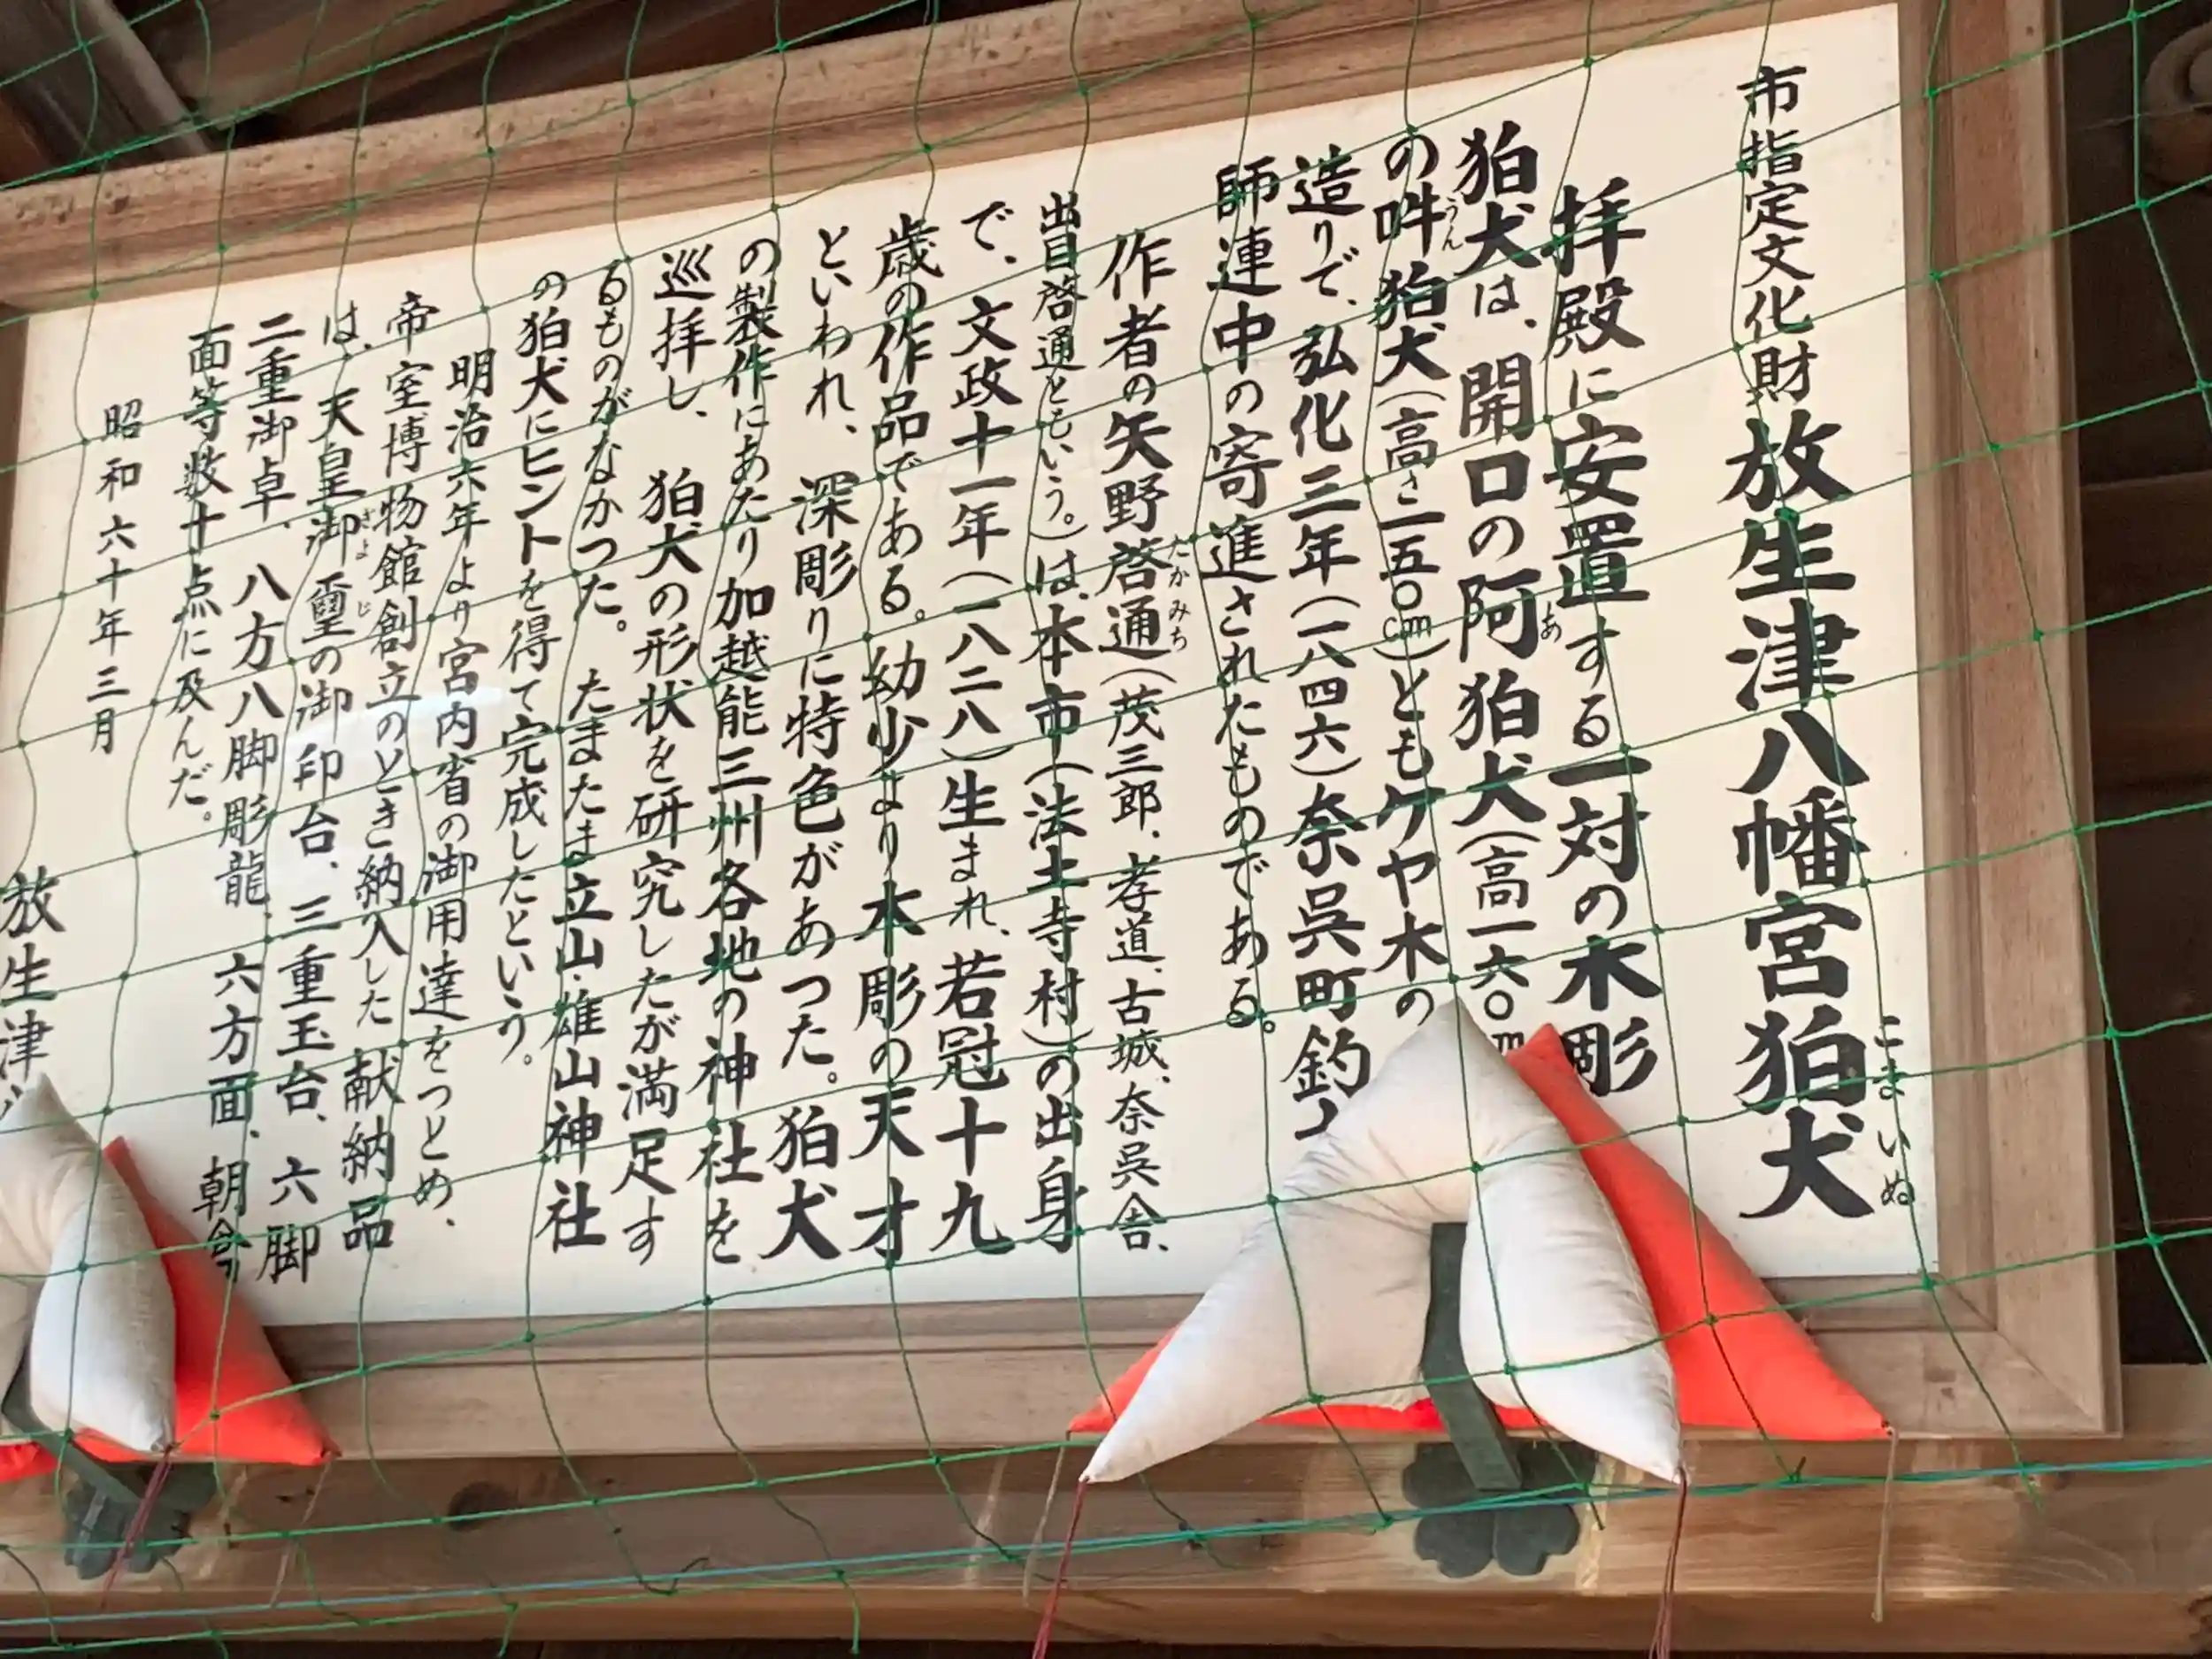 市指定文化財 放生津八幡宮狛犬
こまいぬ
拝殿に安置する一対の木彫
狛犬は、開口の阿狛犬(高一六〇
あ
の吽狛犬(高さ一五〇cm)ともケヤ木の
うん
造りで、弘化三年(一八四六)奈呉町釣
師連中の寄進されたものである。
作者の矢野啓通(茂三郎、孝道、古城、奈呉舎、
たかみち
出目啓通ともいう。)は、本市(法土寺村)の出身
で、文政十一年(一八二八)生まれ、若冠十九
歳の作品である。幼少より木彫の天才
といわれ、深彫りに特色があつた。狛犬
の製作にあたり加越能三州各地の神社を
巡拝し、狛犬の形状を研究したが満足す
るものがなかつた。たまたま立山・雄山神社
の狛犬にヒントを得て完成したという。
明治六年より宮内省の御用達をつとめ、
帝室博物館創立のとき納入した献納品
は、天皇御璽の御印台、三重玉台、六脚
ぎょじ
二重御卓、八方八脚彫龍、六方面、朝倉
面等数十点に及んだ。
昭和六十年三月
放生津